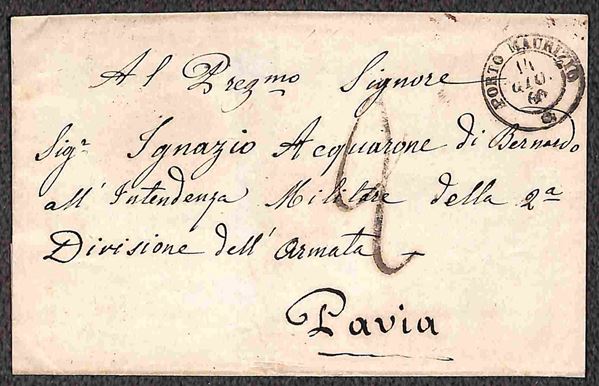 Al Pregmo Signore
Sigr Ignazio Acquarone di Bernardo
all'Intendenza Militare della 2a
Divisione dell'Armata
Pavia
PORTO MAURIZIO
14
GIU.
60